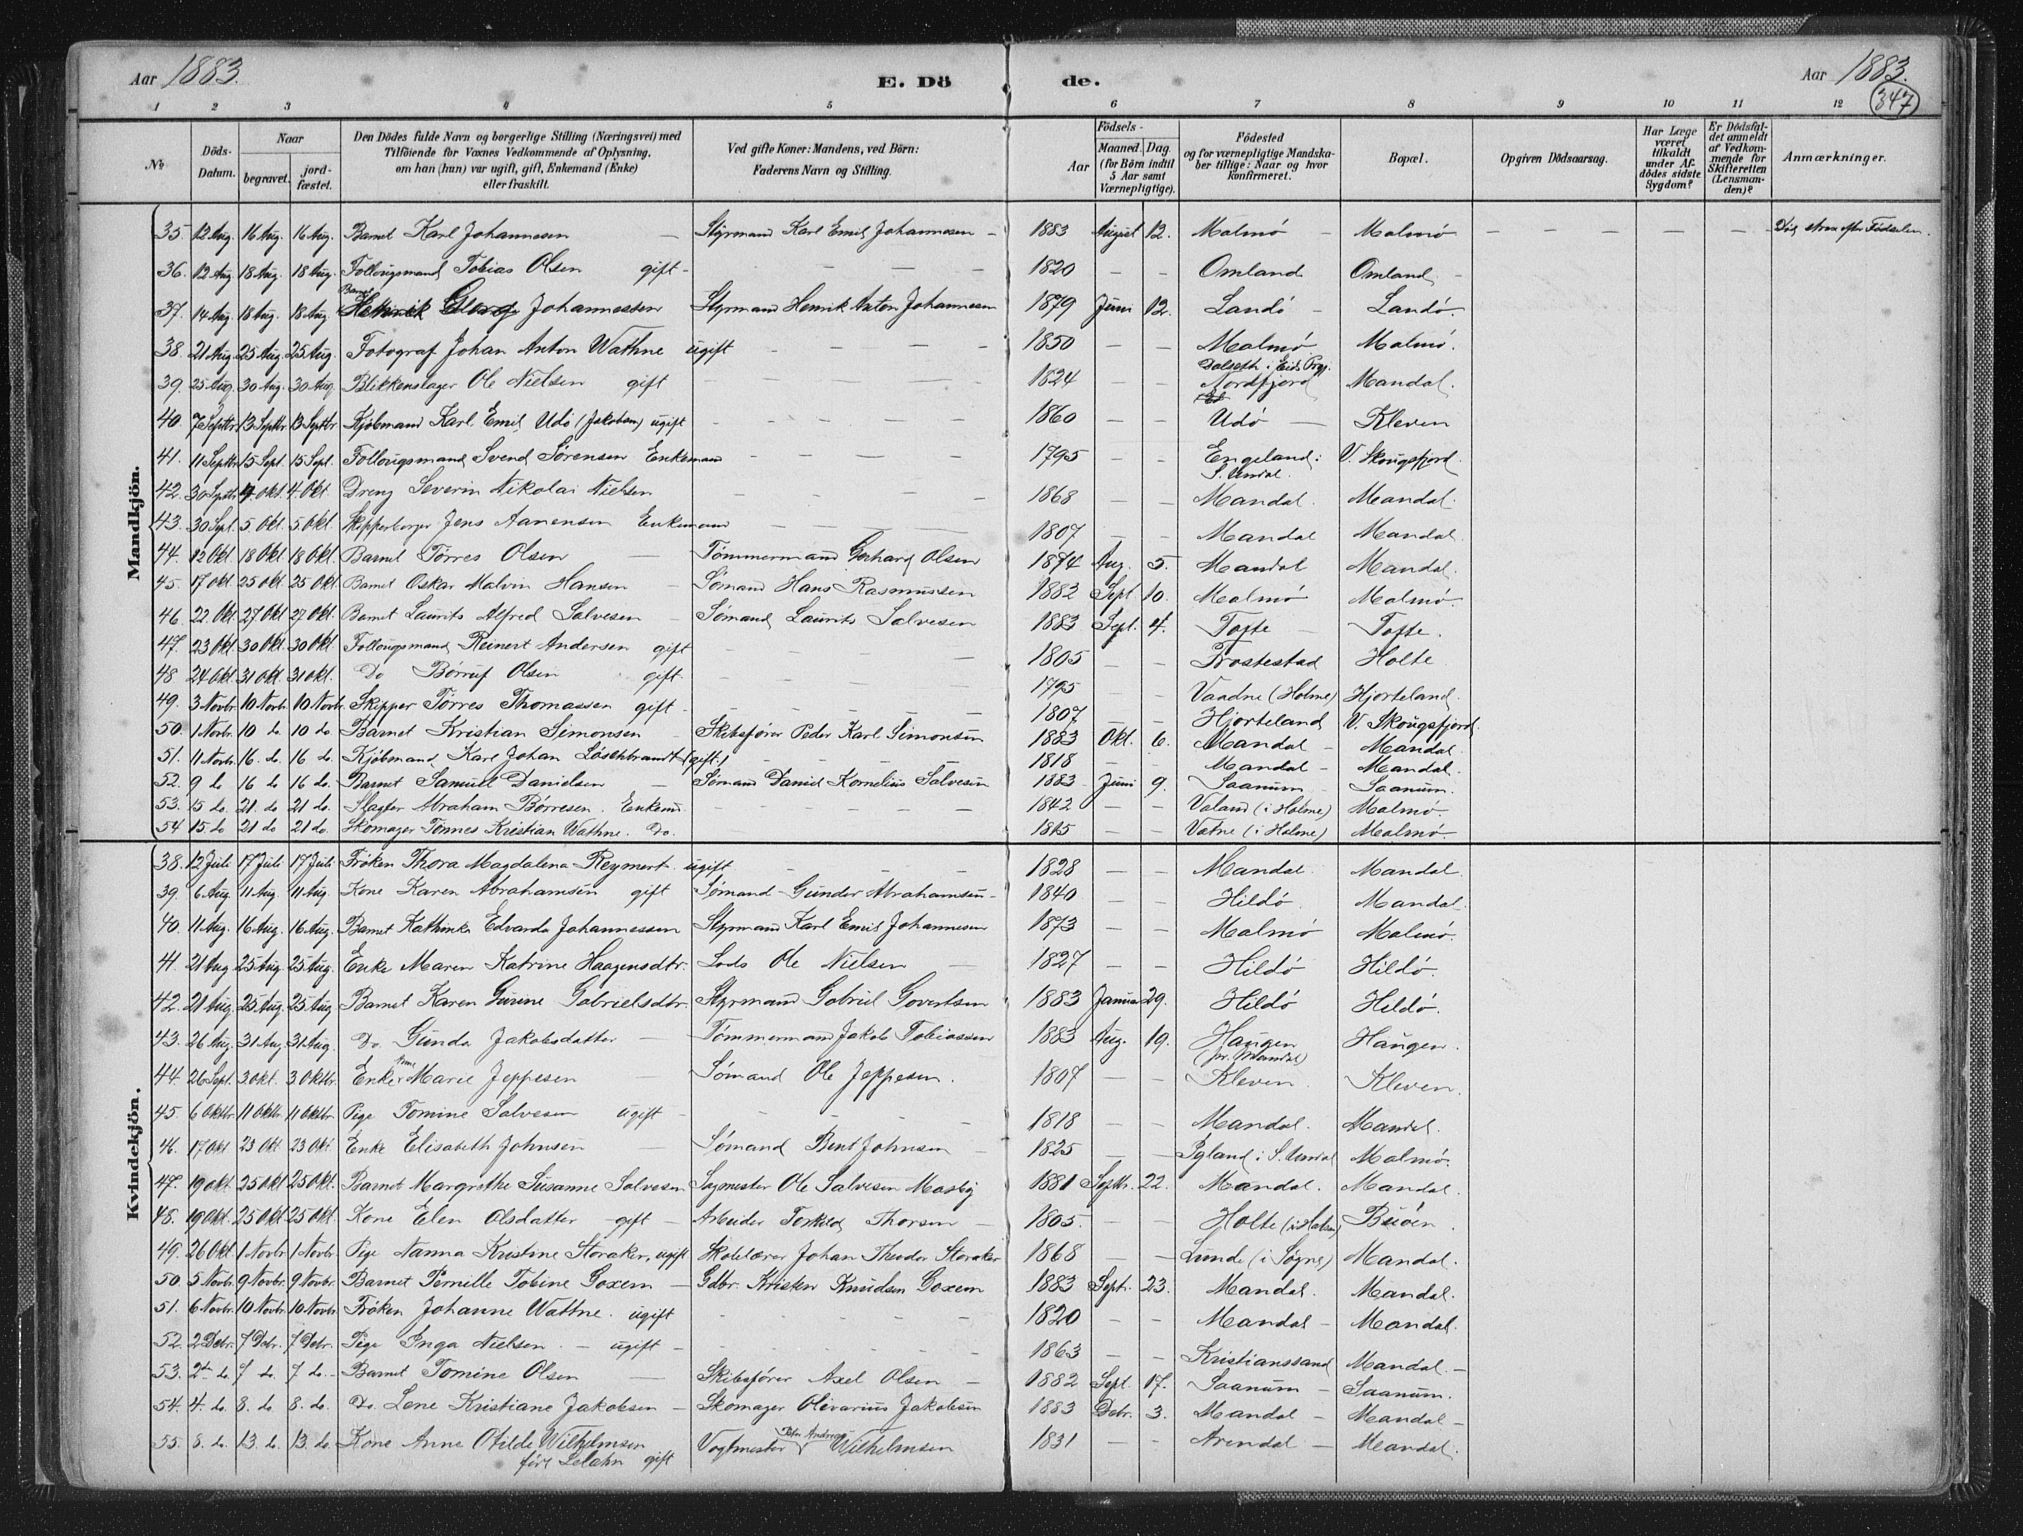 Aar 1883.
E. Dö de.
Aar 1883.
347
1 2 3 4 5 6 7 8 9 10 11 12
No
Döds-Datum.
Naar
begravet.
jord-fæstet.
Den Dödes fulde Navn og borgerlige Stilling (Næringsvei) med Tilföiende for Voxnes Vedkommende af Oplysning, om han (hun) var ugift, gift, Enkemand (Enke) eller fraskilt.
Ved gifte Koner: Mandens, ved Börn: Faderens Navn og Stilling.
Födsels-
Aar
Maaned. Dag.
(for Börn indtil 5 Aar samt Værnepligtige).
Födested og for værnepligtige Mandskaber tillige: Naar og hvor konfirmeret.
Bopæl.
Opgiven Dödsaarsag.
Har Læge været tilkaldt under Afdödes sidste Sygdom?
Er Dödsfaldet anmeldt af Vedkommende for Skifteretten (Lensmanden)?
Anmærkninger.
Mandkjön.
35. 12 Aug. 16 Aug. 16 Aug. Barnet Karl Johannesen — Styrmand Karl Emil Johannesen — 1883 August 12. Malmö — Malmö — — — — — Död strax efter Födselen.
36. 12 Aug. 18 Aug. 18 Aug. Follougsmand Tobias Olsen gift — — — — 1820 — — Omland Omland —
37. 14 Aug 18 Aug. 18 Aug Barnet Henrik Georg Johannessen Styrmand Henrik Anton Johannesen 1879 Juni 12. Landö — Landö.
38. 21 Aug. 25 Aug. 25 Aug. Fotograf Johan Anton Wathne ugift — — — — 1850 — — Malmö Malmö.
39. 25 Aug. 30 Aug. 30 Aug. Blikkenslager Ole Nielsen gift — — — — 1824 — — Dalseth i Eids Prgj. Nordfjord Mandal.
40. 7 Septbr. 13 Septbr 13 Septbr. Kjöbmand Karl Emil Udö (Jakobsen) ugift — — — — 1860 — — Udö — Kleven
41. 11 Septbr. 15 Sept. 15 Sept. Follougsmand Svend Sörensen Enkemand — — — 1795 — — Engeland i S. Undal. V. Skougsfjord.
42. 30 Septbr. 4 Okt. 4. Okt Dreng Severin Nikolai Nielsen — — — — 1868 — — Mandal. Mandal.
43. 30 Sept. 5 Okt. 5 Okt. Skipperborger Jens Aanensen Enkemand — — — 1807 — — Mandal Mandal.
44. 12 Okt 18 Okt. 18 Okt. Barnet Törres Olsen — Tömmermand Gerhard Olsen 1874 Aug. 5. Mandal Mandal.
45. 17 Okt 25 Okt 25 Okt Barnet Oskar Malvin Hansen — Sömand Hans Rasmussen 1882 Sept 10. Malmö Malmö.
46. 22 Okt. 27 Okt 27 Okt. Barnet Laurits Alfred Salvesen — Sömand Laurits Salvesen 1883 Sept. 4. Tofte — Tofte.
47. 23 Okt 30 Okt 30 Okt Follougsmand Reinert Andersen gift — — — 1805 — — Frostestad Holte
48 24 Okt 31 Okt 31 Okt. Do Börruf Olsen gift. — — — 1795 — — Vaadne (Holme) Hjorteland.
49. 3 Novbr. 10 Novbr 10 Novbr. Skipper Törres Thomassen gift — — — — 1807 — — Hjorteland V. Skougsfjord
50. 1 Novbr. 10 do 10 do. Barnet Kristian Simonsen — Skibsförer Peder Karl Simonsen 1883 Okt. 6. Mandal — Mandal.
51. 11 Novbr. 16. do. 16 do. Kjöbmand Karl Johan Löschbrandt (gift.) — — — — 1818 — — Mandal — Mandal.
52. 9 do 16 do 16 do. Barnet Samuel Danielsen — Sömand Daniel Kornelius Salvesen 1883 Juni 9. Saanum — Saanum.
53. 15 do. 21 do 21 do. Slagter Abraham Börresen. Enkem. — — — — 1842 — — Valand (i Holme) Malmö.
54 15. do 21 do 21 do. Skomager Tönnes Kristian Wathne. Do. — — — — 1815 — — Vatne (i Holme) Malmö.
Kvindekjön.
38. 12 Juli 17 Juli 17 Juli. Fröken Thora Magdalena Reymert ugift — — — 1828 — — Mandal. Mandal.
39. 6 Aug. 11 Aug. 11 Aug. Kone Karen Abrahamsen gift Sömand Gunder Abrahamsen — 1840 — — Hildö. Mandal.
40. 11 Aug. 16 Aug. 16 Aug. Barnet Kathinka Edvarda Johannessen Styrmand Karl Emil Johannesen 1873 — — Malmö Malmö.
41 21 Aug 25 Aug 25 Aug. Enke Maren Katrine Haagensdtr. Lods Ole Nielsen — 1827 — — Hildö Hildö.
42. 21 Aug. 25 Aug. 25 Aug Barnet Karen Gurine Gabrielsdtr. Styrmand Gabriel Govertsen 1883 Januar 29. Hildö Hildö.
43. 26 Aug. 31 Aug 31 Aug. Do. Gunda Jakobsdatter — Tömmermand Jakob Tobiassen 1883 Aug. 19. Haugen (pr. Mandal) Haugen.
44. 26 Sept. 3. Okt. 3 Oktbr. Enke Marie Jeppesen — Sömand Ole Jeppesen. 1807 — — Kleven. Kleven.
45. 6 Oktbr. 11 Oktbr 11 Oktbr. Pige Tomine Salvesen ugift — — — — 1818 — — Mandal. Mandal.
46. 17 Okt 23 Okt 23 Okt. Enke Elisabeth Johnsen — Sömand Bent Johnsen — 1825 — — Igland i S. Undal Malmö.
47. 19 Okt. 25 Okt 25 Okt. Barnet Margrethe Susanne Salvesen Sagmester Ole Salvesen Mosby 1881 Septbr. 22. Mandal. Mandal.
48. 19 Okt. 25 Okt 25 Okt. Kone Elen Olsdatter gift — Arbeider Torkild Thorsen — 1805. — — Holte (i Halsaa) Buöen.
49. 26 Okt 1 Novbr 1 Novbr. Pige Nanna Kristine Storaker, ugift Skolelærer Johan Theodor Storaker 1868 — — Lunde (i Søgne) Mandal.
50. 5 Novbr. 9 Novbr. 9 Novbr. Barnet Pernille Tobine Goxem — Gdbr. Kristen Knudsen Goxem 1883 Sept. 23. Mandal. Mandal.
51. 6 Novbr. 10 Novbr. 10 Novbr. Fröken Johanne Wattne. ugift — — — — 1820 — — Mandal — Mandal.
52. 2 Debr. 7 Debr. 7 Debr. Pige Inga Nielsen. — ugift — — — — 1863 — — Kristianssand Mandal. —
53. 2 do. 7 do. 7 do. — Barnet Tomine Olsen — Skibsförer Axel Olsen — 1882 Sept. 17. Saanum — Saanum.
54. 4. do. 8. do. 8. do. Do. Lene Kristiane Jakobsen — Skomager Olivarius Jakobsen 1883 Debr. 3. Mandal — Mandal —
55. 8. do. 13. do. 13. do. Kone Anne Otilde Wilhelmsen född gift Vogtmester Wilhelmsen 1831 — — Arendal — Mandal.